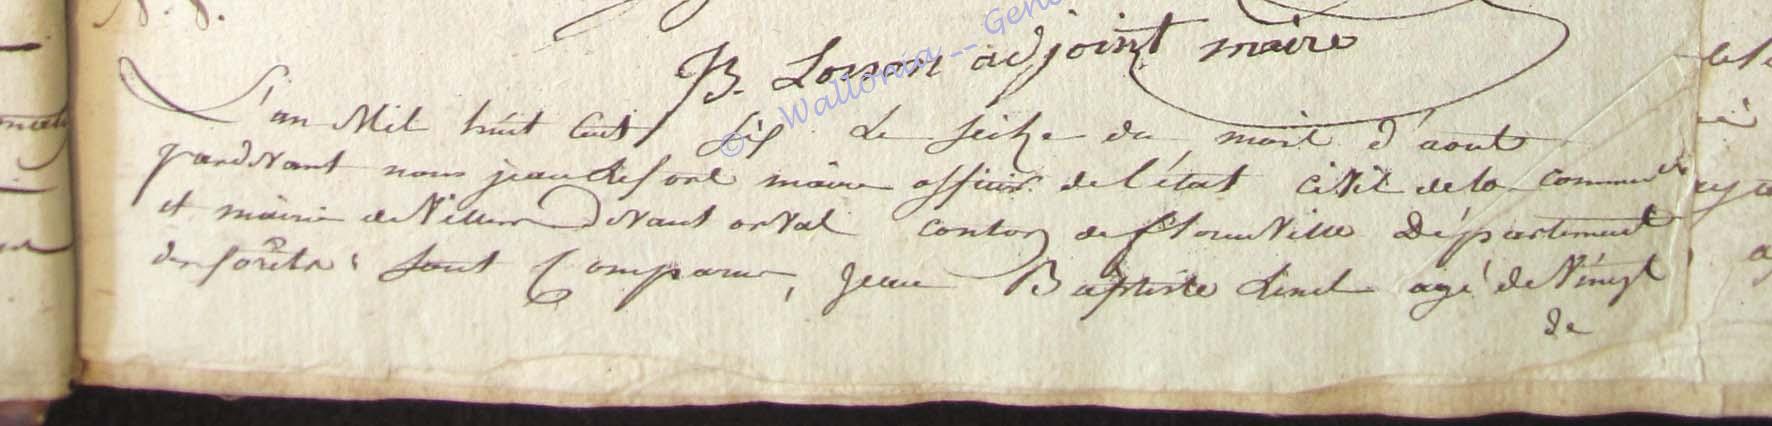 B. Lonon adjoint maire
L'an Mil huit Cent Six Le seize du mois d'aout
pardevant nous jean maire officier de l'état Civil de la commune de
et mairie de Villers devant orval Canton de florenville Département
des forêts. Sont Comparus, Jean Baptiste agé de Vingt
de
© Wallonia -- Gene